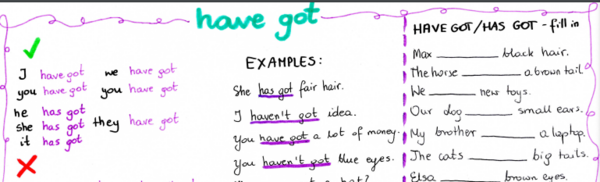 have got
I have got we have got
you have got you have got
he has got
she has got they have got
it has got
EXAMPLES:
She has got fair hair.
I haven't got idea.
You have got a lot of money.
You haven't got blue eyes.
HAVE GOT/HAS GOT - fill in
Max ________ black hair.
The horse ________ a brown tail.
We ________ new toys.
Our dog ________ small ears.
My brother ________ a laptop.
The cats ________ big tails.
Elsa ________ brown eyes.